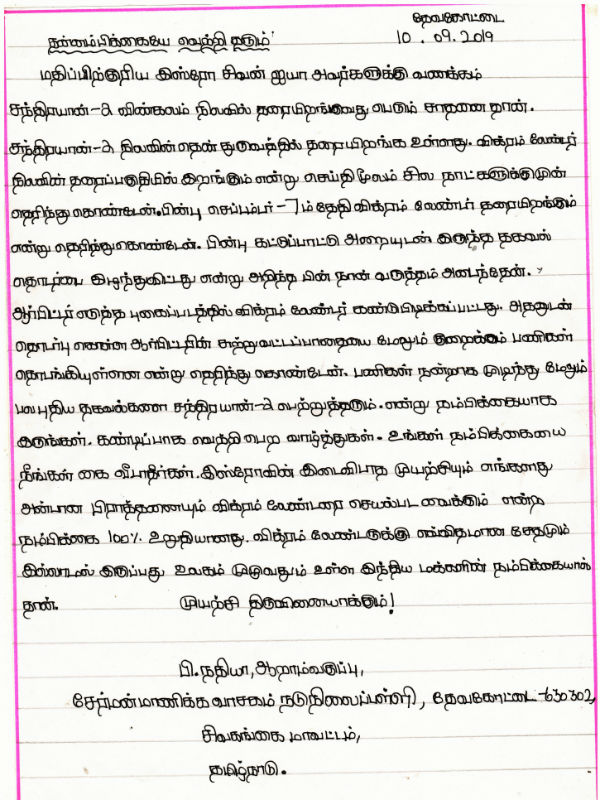 தேவகோட்டை
தன்னம்பிக்கையே வெற்றி தரும்
10.09.2019
மதிப்பிற்குரிய இஸ்ரோ சிவன் ஐயா அவர்களுக்கு வணக்கம்
சந்திரயான்-2 விண்கலம் நிலவில் தரையிறங்குவது பெரும் சாதனை தான்.
சந்திரயான்-2 நிலவின் தென் துருவத்தில் தரையிறங்க உள்ளது. விக்ரம் லேண்டர்
நிலவின் தரைப்பகுதியில் இறங்கும் என்று செய்தி மூலம் சில நாட்களுக்குமுன்
தெரிந்து கொண்டேன். பின்பு செப்டம்பர்-7ம் தேதி விக்ரம் லேண்டர் தரையிறங்கும்
என்று தெரிந்து கொண்டேன். பின்பு கட்டுப்பாட்டு அறையுடன் இருந்த தகவல்
தொடர்பை இழந்துவிட்டது என்று அறிந்த பின் நான் வருத்தம் அடைந்தேன்.
ஆர்பிட்டர் எடுத்த புகைப்படத்தில் விக்ரம் லேண்டர் கண்டுபிடிக்கப்பட்டது. அதனுடன்
தொடர்பு கொள்ள ஆர்பிட்டரின் சுற்றுவட்டப்பாதையை மேலும் குறைக்கும் பணிகள்
தொடங்கியுள்ளன என்று தெரிந்து கொண்டேன். பணிகள் நன்றாக முடிந்து மேலும்
பல புதிய தகவல்களை சந்திரயான்-2 பெற்றுத்தரும். என்று நம்பிக்கையாக
இருங்கள். கண்டிப்பாக வெற்றி பெற வாழ்த்துகள். உங்கள் நம்பிக்கையை
நீங்கள் கை விடாதீர்கள். இஸ்ரோவின் இடைவிடாத முயற்சியும் எங்களது
அன்பான பிராத்தனையும் விக்ரம் லேண்டரை செயல்பட வைக்கும் என்ற
நம்பிக்கை 100% உறுதியானது. விக்ரம் லேண்டருக்கு எவ்விதமான சேதமும்
இல்லாமல் இருப்பது உலகம் முழுவதும் உள்ள இந்திய மக்களின் நம்பிக்கையால்
தான். முயற்சி திருவினையாக்கும்!
பி.நதியா, ஆறாம்வகுப்பு,
சேர்மன் மாணிக்க வாசகம் நடுநிலைப்பள்ளி, தேவகோட்டை-630302,
சிவகங்கை மாவட்டம்,
தமிழ்நாடு.